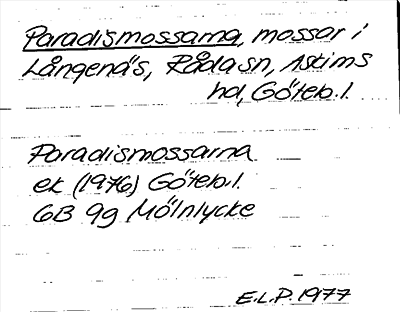 Paradismossarna, mossar i
Långenäs, Råda sn, Askims
hd, Göteb. l.
Paradismossarna
ek (1976) Göteb. l.
6B 9g Mölnlycke
E.L.P. 1977